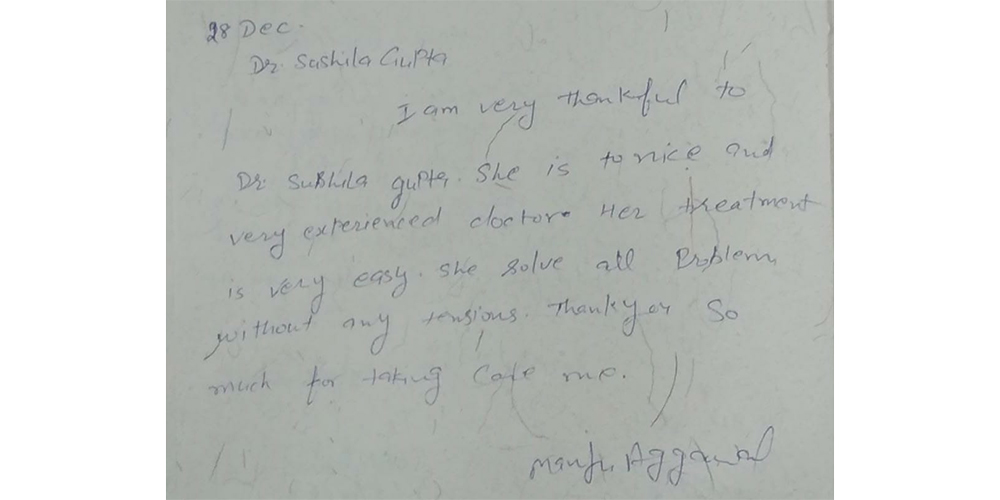 28 Dec.
Dr. Sushila Gupta
I am very thankful to
Dr. Sushila gupta. She is to nice and
very experienced doctor. Her treatment
is very easy. She solve all Problem
without any tensions. Thankyou So
much for taking Care me.
Manju Aggarwal